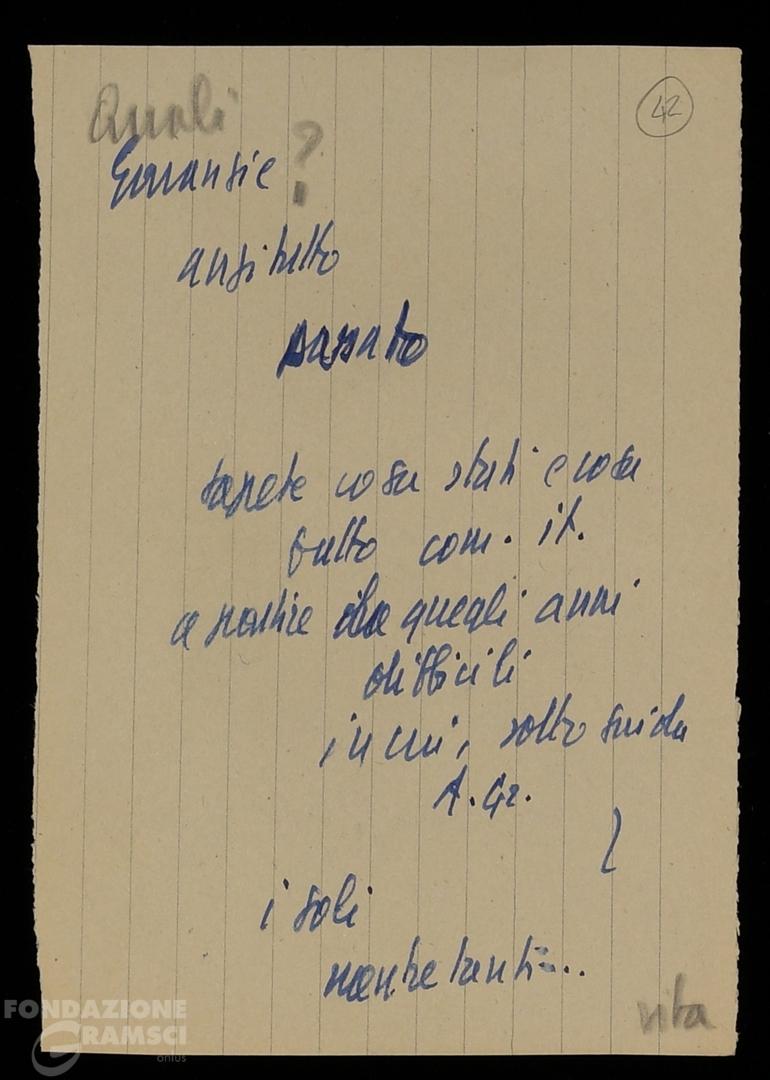 Quali
42
Garanzie ?
anzitutto
passato
sapete cosa stati e cosa
fatto com. it.
a partire da quegli anni
difficili
in cui, sotto guida
A. Gr.
i soli
mentre tanti...
vita
FONDAZIONE
GRAMSCI
onlus